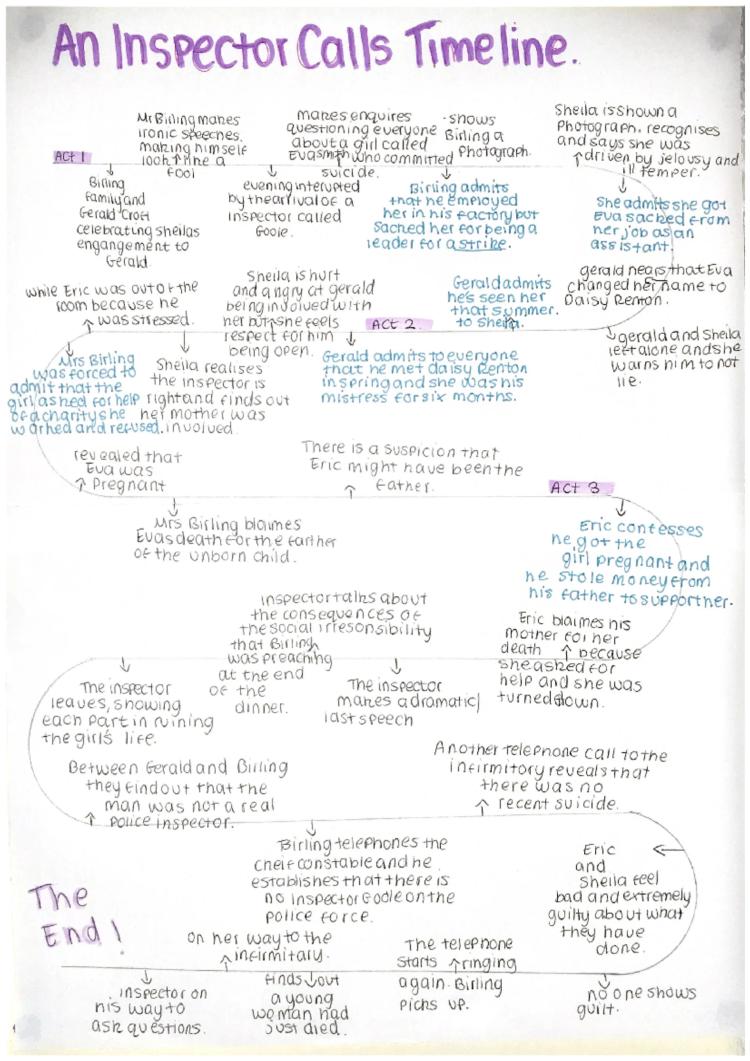 An Inspector Calls Timeline.
ACT 1
Birling
family and
Gerald Croft
celebrating sheilas
engangement to
Gerald.
Mr Birling makes
ironic speeches.
making himself
look like a
fool
evening interupted
by the arrival of a
inspector called
Goole.
makes enquires
questioning everyone
about a girl called
Eva smith who committed
suicide.
Birling admits
that he employed
her in his factory but
Sacked her for being a
leader for a strike.
shows
Birling a
Photograph.
Sheila is shown a
Photograph. recognises
and says she was
driven by jelousy and
ill temper.
She admits she got
Eva sacked from
her job as an
assistant.
gerald hears that Eva
changed her name to
Daisy Renton.
gerald and Sheila
left alone and she
warns him to not
lie.
Gerald admits
he's seen her
that summer.
to sheila.
ACT 2.
Gerald admits to everyone
that he met daisy Renton
in spring and she was his
mistress for six months.
Sheila is hurt
and angry at gerald
being involved with
her but she feels
respect for him
being open.
Sheila realises
the inspector is
right and finds out
her mother was
involved.
while Eric was out of the
room because he
was stressed.
Mrs Birling
was forced to
admit that the
girl asked for help
of a charity she
worked and refused.
revealed that
Eva was
Pregnant
Mrs Birling blaimes
Evas death for the farther
of the unborn child.
There is a suspicion that
Eric might have been the
Father.
ACT 3
Eric confesses
he got the
girl pregnant and
he stole money from
his father to support her.
Eric blaimes his
mother for her
death because
she asked for
help and she was
turned down.
The inspector
makes a dramatic
last speech
inspector talks about
the consequences of
the social irresonsibility
that Birling
was preaching
at the end
of the
dinner.
The inspector
leaves, showing
each part in ruining
the girls life.
Between Gerald and Birling
they find out that the
man was not a real
police inspector.
Birling telephones the
cheif constable and he
establishes that there is
no inspector Goole on the
police force.
Another telephone call to the
infirmitory reveals that
there was no
recent suicide.
Eric
and
Sheila feel
bad and extremely
guilty about what
they have
done.
no one shows
guilt.
The telephone
starts ringing
again. Birling
picks up.
finds out
a young
woman had
Just died.
on her way to the
infirmitary.
inspector on
his way to
ask questions.
The
End!